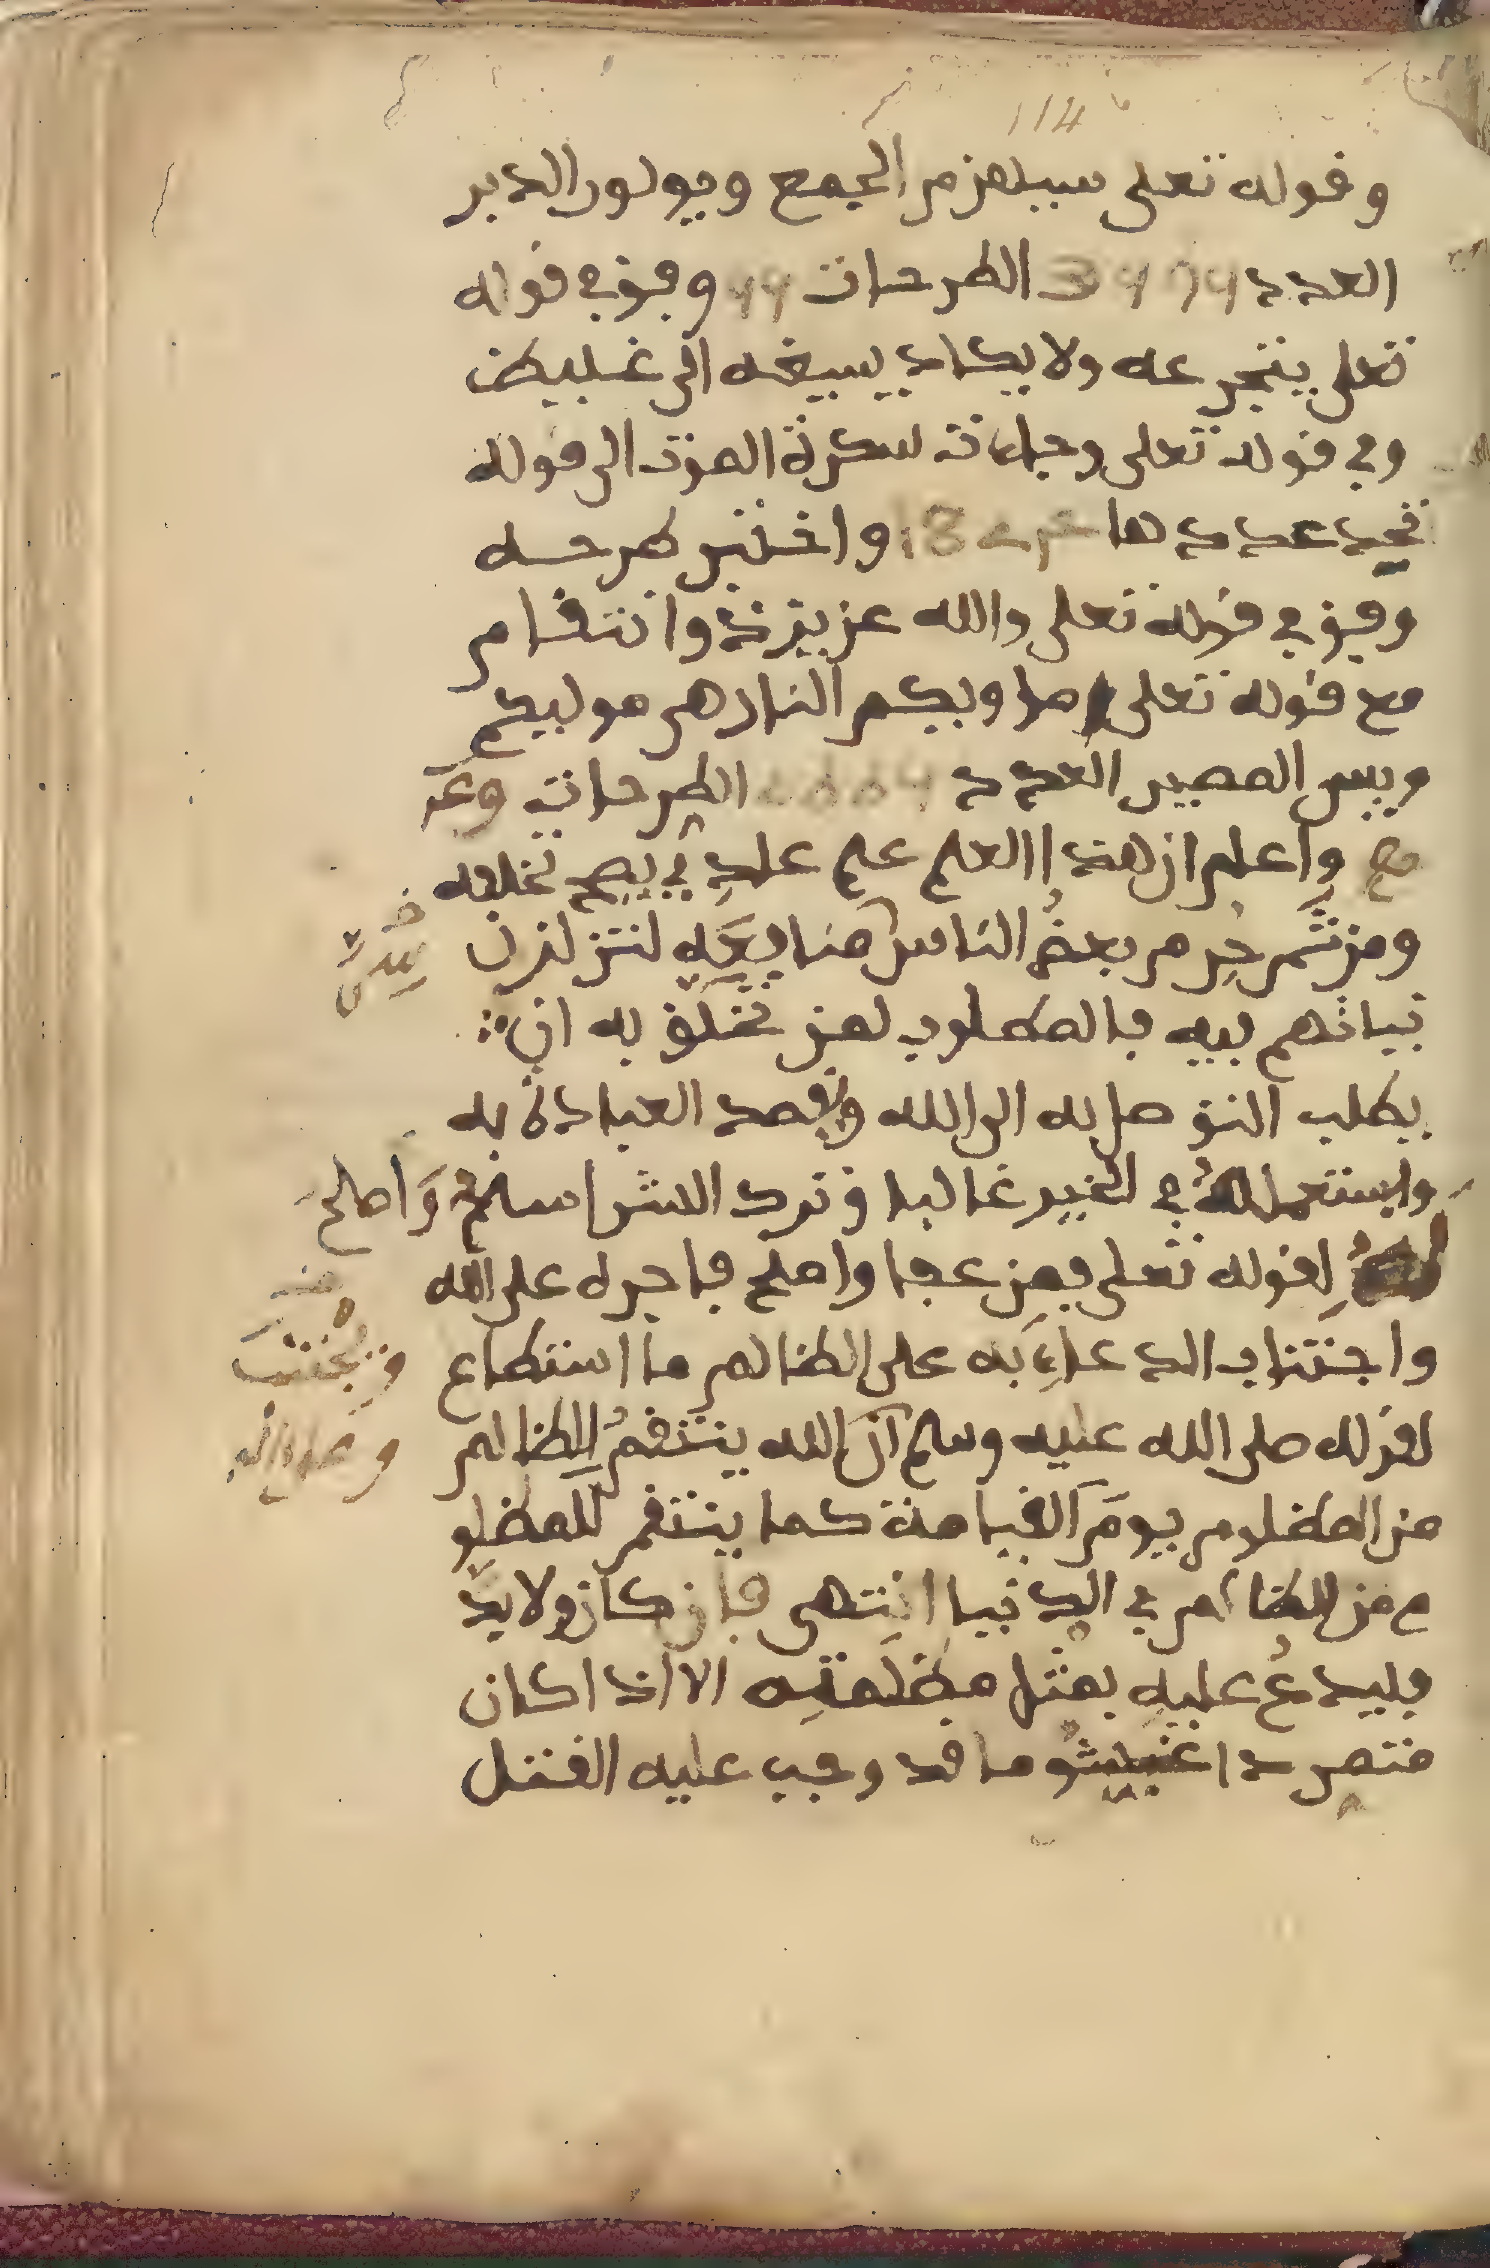 114
وقوله تعلى سيهزم الجمع ويولون الدبر
العدد الطرحات 44 وفي قوله
تعلى يتجرعه ولا يكاد يسيغه الى غليظ
وفي قوله تعلى وجاءت سكرة الموت الى قوله
تحيد عددها واختبر طرحه
وفي قوله تعلى والله عزيز ذو انتقام
مع قوله تعلى ماويكم النار هي موليكم
وبيس المصير العدد الطرحات
مع واعلم ان هذا العلم علم يصح تخلفه
ومن ثم حرم بعض الناس لتزلزل
نياتهم فيه فالمطلوب لمن تخلق به ان
يطلب التوصل به الى الله ويقصد العبادة به
وليستعمله في الخير غالبا وترد الشر واصلح
لقوله تعلى فمن عفا واصلح فاجره على الله
واجتناب الدعاء به على الظالم ما استطاع
ويجتنب
لقوله صلى الله عليه وسلم ان الله ينتقم للظالم
من المظلوم يوم القيامة كما ينتقم للمظلو
م من الظالم في الدنيا انتهى فان كان ولا بد
فليدع عليه بمثل مظلمته الا اذا كان
متمردا قد وجب عليه القتل